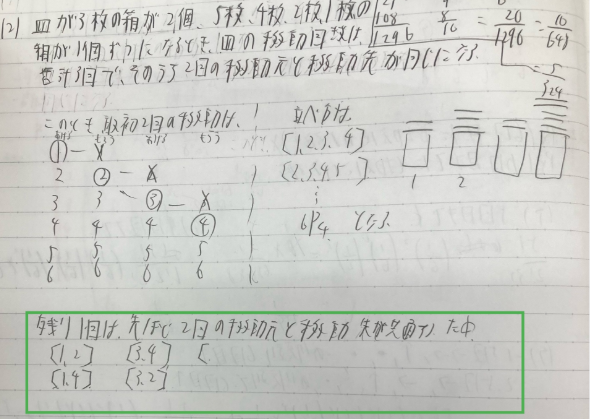 (2) 皿が3枚の箱が2個、5枚、4枚、2枚、1枚の
箱が1個ずつになるとき、皿の移動回数は、
合計3回で、そのうち2回の移動元と移動先が同じになる
108
1296
8
16
= 20/1296 = 10/648
= 5/324
このとき、最初2回の移動は、
もらう
並べ方は、
① ー X
2 ② ー X
3 3 ー ③ ー X
4 4 4 ④
5 5 5 5
6 6 6 6
[1,2,3,4]
[2,3,4,5]
⋮
6P4 となる。
1 2
残り1回は、先ほど2回の移動元と移動先が
[1,2] [3,4] [
[1,4] [3,2]